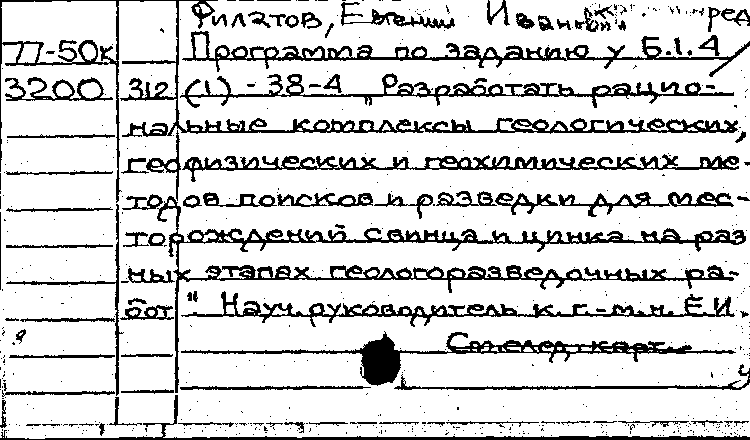 Филатов, Евгений Иванович ред
П-50к Программа по заданию у Б.1.4
3200 312 (1) - 38-4 „Разработать рацио-
нальные комплексы геологических,
геофизических и геохимических ме-
тодов поисков и разведки для мес-
торождений свинца и цинка на раз
ных этапах геологоразведочных ра-
бот". Науч. руководитель к. г.-м. н. Е.И.
См. след. карт.